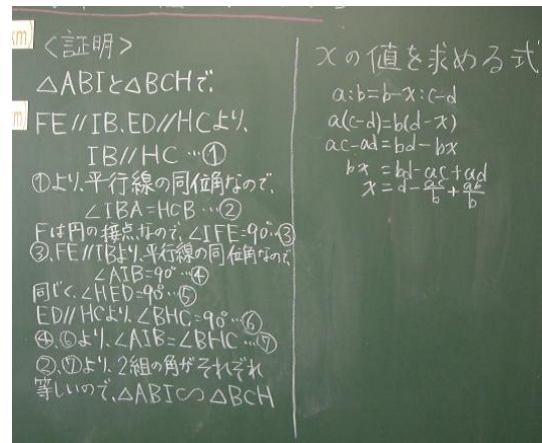 km
<証明>
△ABIと△BCHで、
m
FE//IB、ED//HCより、
IB//HC…①
①より、平行線の同位角なので、
∠IBA=HCB…②
Fは円の接点なので、∠IFE=90°…③
③、FE//IBより、平行線の同位角なので
∠AIB=90°…④
同じく、∠HED=90°…⑤
ED//HCより、∠BHC=90°…⑥
④、⑥より、∠AIB=∠BHC…⑦
②、⑦より、2組の角がそれぞれ
等しいので、△ABI∽△BCH
xの値を求める式
a:b=b-x:c-d
a(c-d)=b(d-x)
ac-ad=bd-bx
bx=bd-ac+ad
x=d-ac/b+ab/b